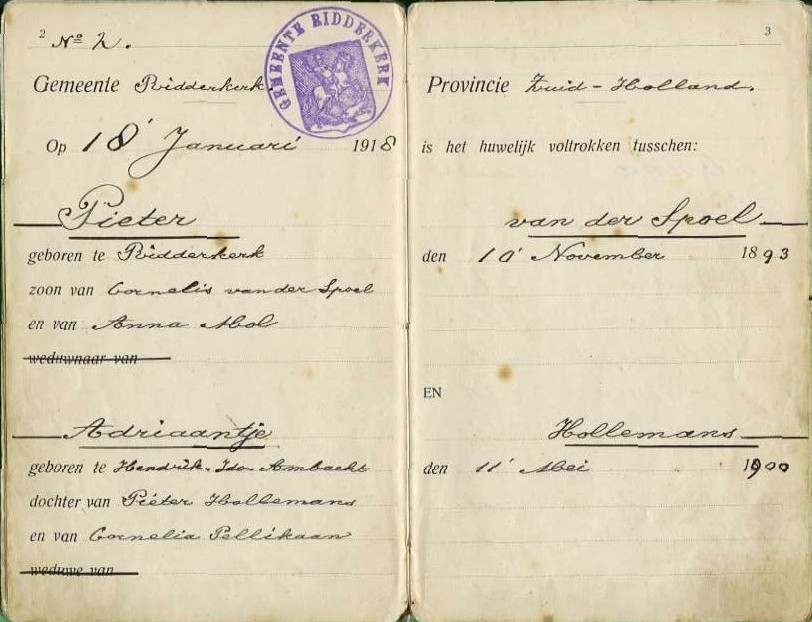 2
No 2.
GEMEENTE RIDDERKERK
Gemeente Ridderkerk
Op 18 Januari 1918
Pieter
geboren te Ridderkerk
zoon van Cornelis van der Spoel
en van Anna Mol
weduwnaar van
Adriaantje
geboren te Hendrik-Ido Ambacht
dochter van Pieter Hollemans
en van Cornelia Pellikaan
weduwe van
3
Provincie Zuid-Holland.
is het huwelijk voltrokken tusschen:
van der Spoel
den 10 November 1893
EN
Hollemans
den 11 Mei 1900